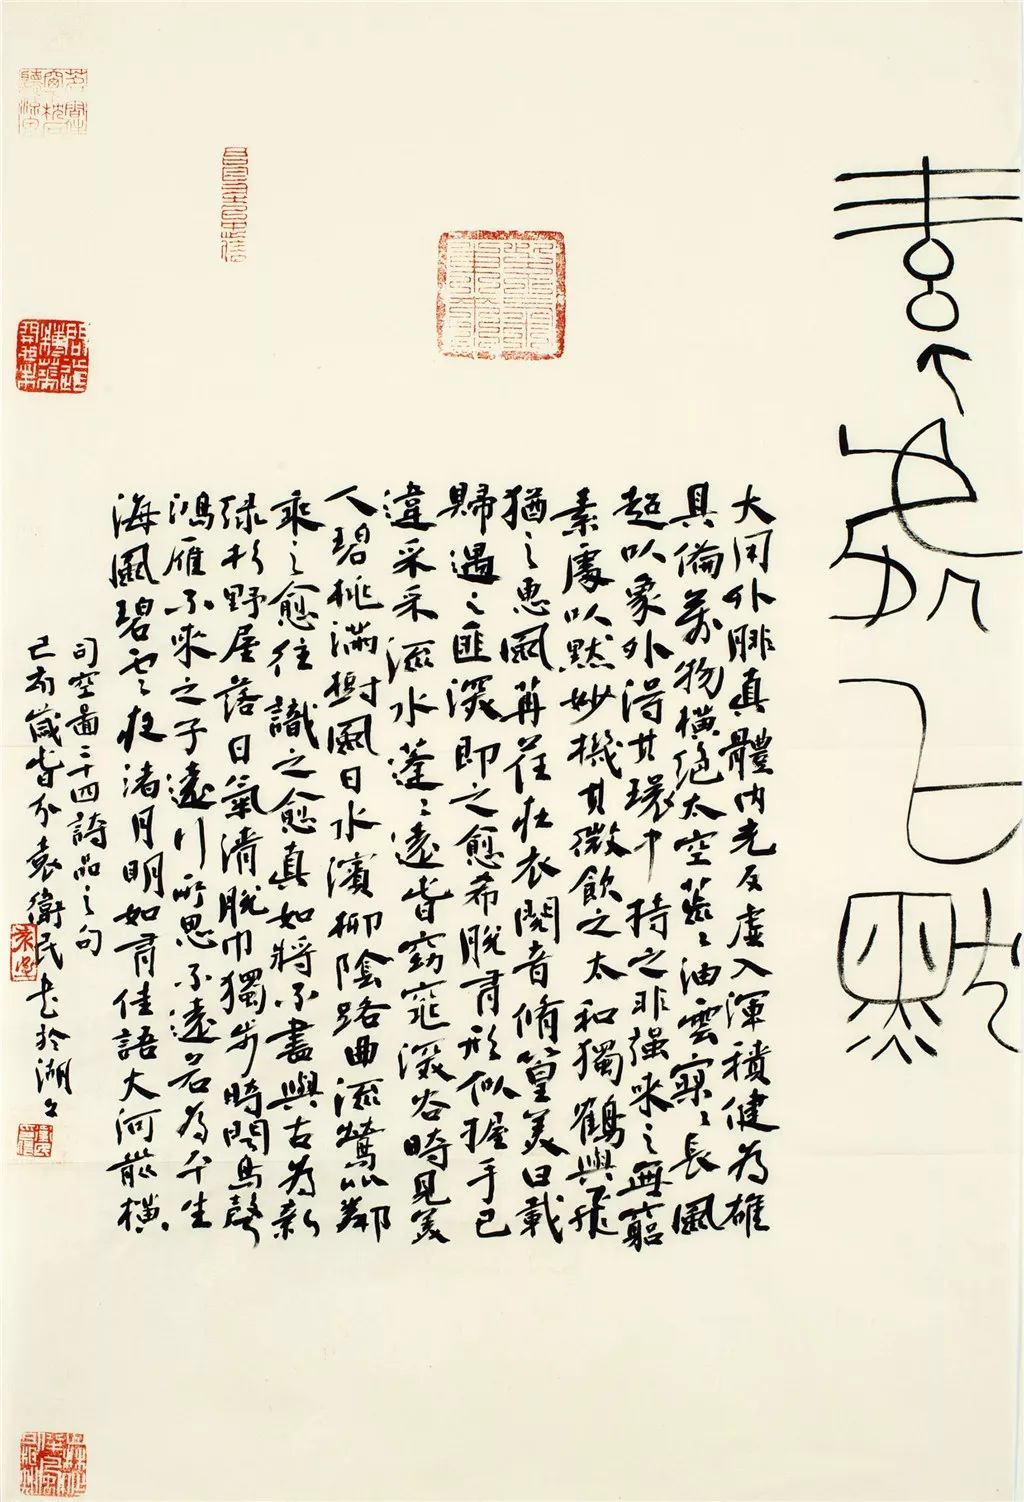 素處以默
大用外腓真體內充反虛入渾積健為雄
具備萬物橫絕太空荒〻油雲寥〻長風
超以象外得其環中持之非强來之無窮
素處以默妙機其微飲之太和獨鶴與飛
猶之惠風苒荏在衣閱音脩篁美曰載
歸遇之匪深即之愈希脫有形似握手已
違采采流水蓬〻遠春窈窕深谷時見美
人碧桃滿樹風日水濱柳陰路曲流鶯比鄰
乘之愈往識之愈真如將不盡與古為新
綠杉野屋落日氣清脫巾獨步時聞鳥聲
鴻雁不來之子遠行所思不遠若為平生
海風碧雲夜渚月明如有佳語大河前橫
司空圖二十四詩品之句
己亥歲春分袁衛民書於湖上